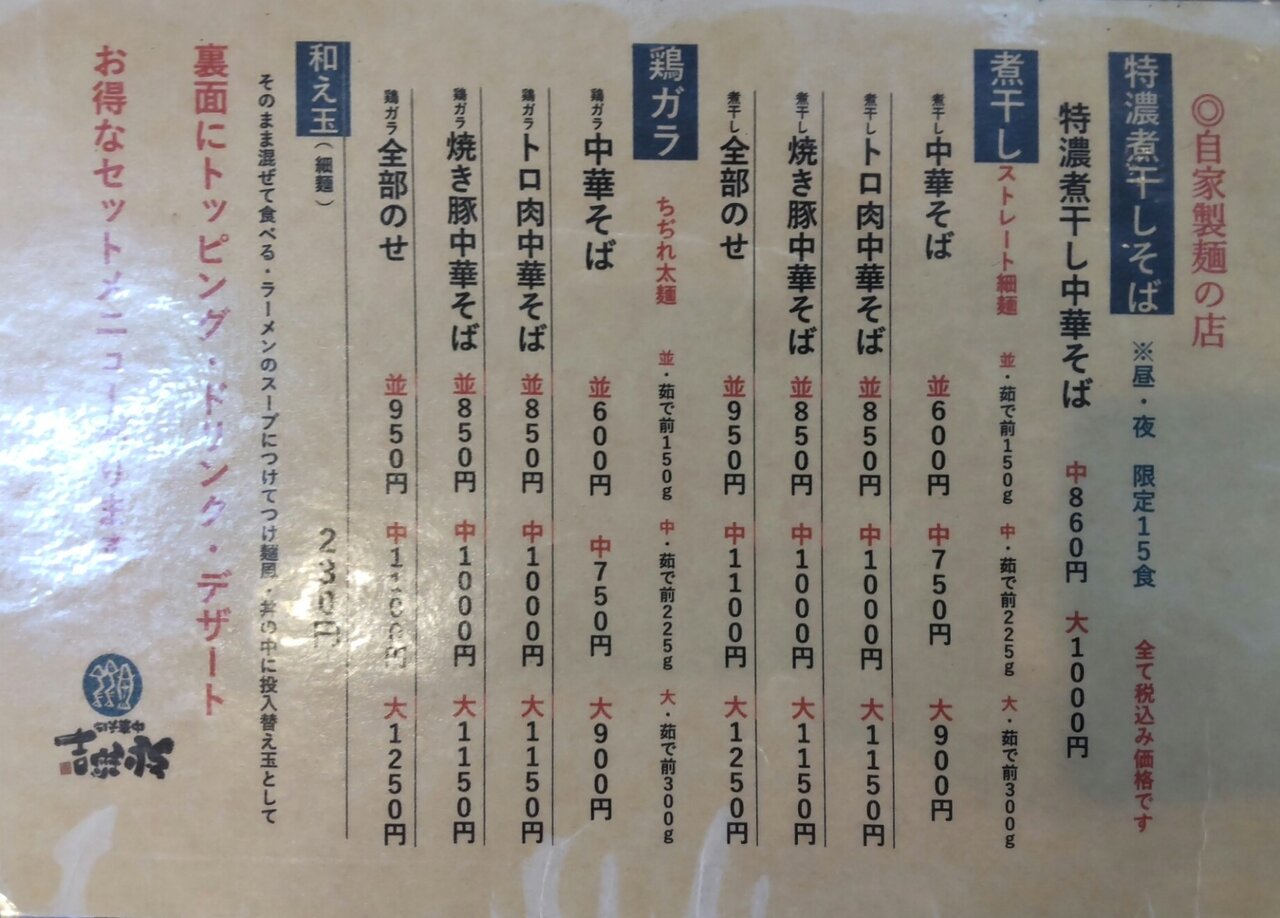 ◎自家製麺の店
特濃煮干しそば ※昼・夜 限定15食 全て税込み価格です
特濃煮干し中華そば 中860円 大1000円
煮干し ストレート細麺 並・茹で前150g 中・茹で前225g 大・茹で前300g
煮干し中華そば 並600円 中750円 大900円
煮干しトロ肉中華そば 並850円 中1000円 大1150円
煮干し焼き豚中華そば 並850円 中1000円 大1150円
煮干し全部のせ 並950円 中1100円 大1250円
鶏ガラ ちぢれ太麺 並・茹で前150g 中・茹で前225g 大・茹で前300g
鶏ガラ中華そば 並600円 中750円 大900円
鶏ガラトロ肉中華そば 並850円 中1000円 大1150円
鶏ガラ焼き豚中華そば 並850円 中1000円 大1150円
鶏ガラ全部のせ 並950円 中1100円 大1250円
和え玉(細麺) 230円
そのまま混ぜて食べる・ラーメンのスープにつけてつけ麺風・丼の中に投入替え玉として
裏面にトッピング・ドリンク・デザート
お得なセットメニュー
中華そば